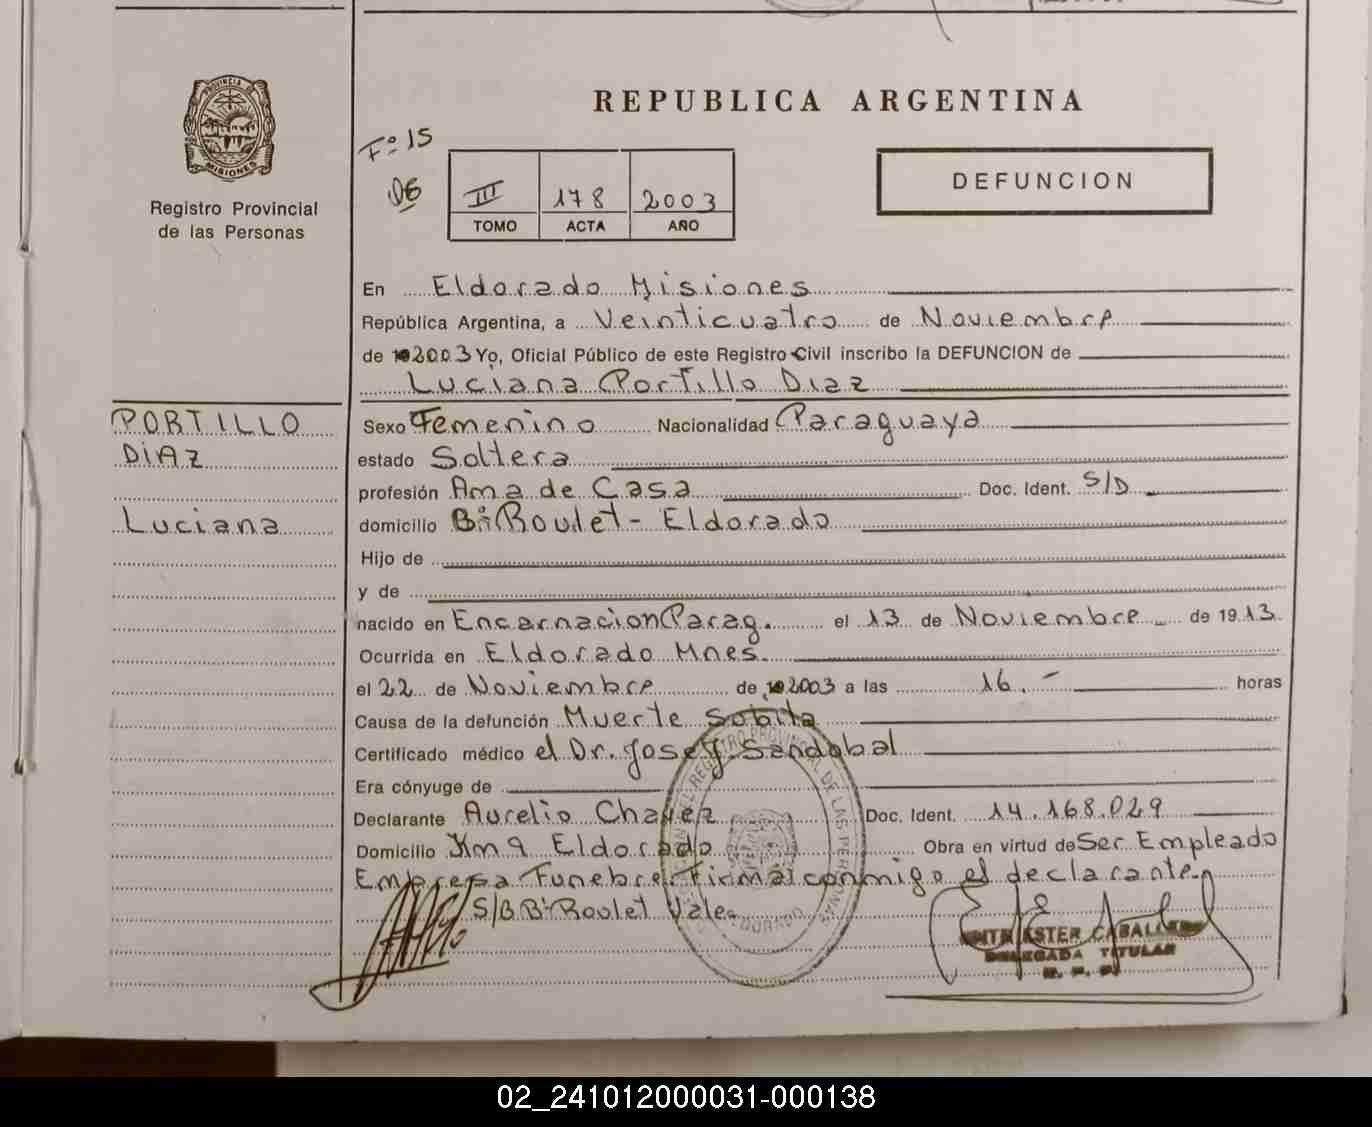 PROVINCIA DE
MISIONES
Registro Provincial
de las Personas
REPUBLICA ARGENTINA
Fº 15
III 178 2003
TOMO ACTA AÑO
DEFUNCION
En Eldorado Misiones
República Argentina, a Veinticuatro de Noviembre
de 2003 Yo, Oficial Público de este Registro Civil inscribo la DEFUNCION de
Luciana Portillo Diaz
PORTILLO
DiAz
Luciana
Sexo Femenino Nacionalidad Paraguaya
estado Soltera
profesión Ama de Casa Doc. Ident. S/D
domicilio Bº Roulet - Eldorado
Hijo de
y de
nacido en Encarnacion Parag. el 13 de Noviembre de 1913
Ocurrida en Eldorado Mnes.
el 22 de Noviembre de 2003 a las 16.- horas
Causa de la defunción Muerte Subita
Certificado médico el Dr. Jose J. Sandobal
Era cónyuge de
Declarante Aurelio Chavez Doc. Ident. 14.168.029
Domicilio Km 9 Eldorado Obra en virtud de Ser Empleado
Empresa Funebre. Firma conmigo el declarante.
S/B Bº Roulet Vale.
ESTER CABALLERO
DELEGADA TITULAR
R. P. P.
REGISTRO PROVINCIAL DE LAS PERSONAS
ELDORADO
02_241012000031-000138